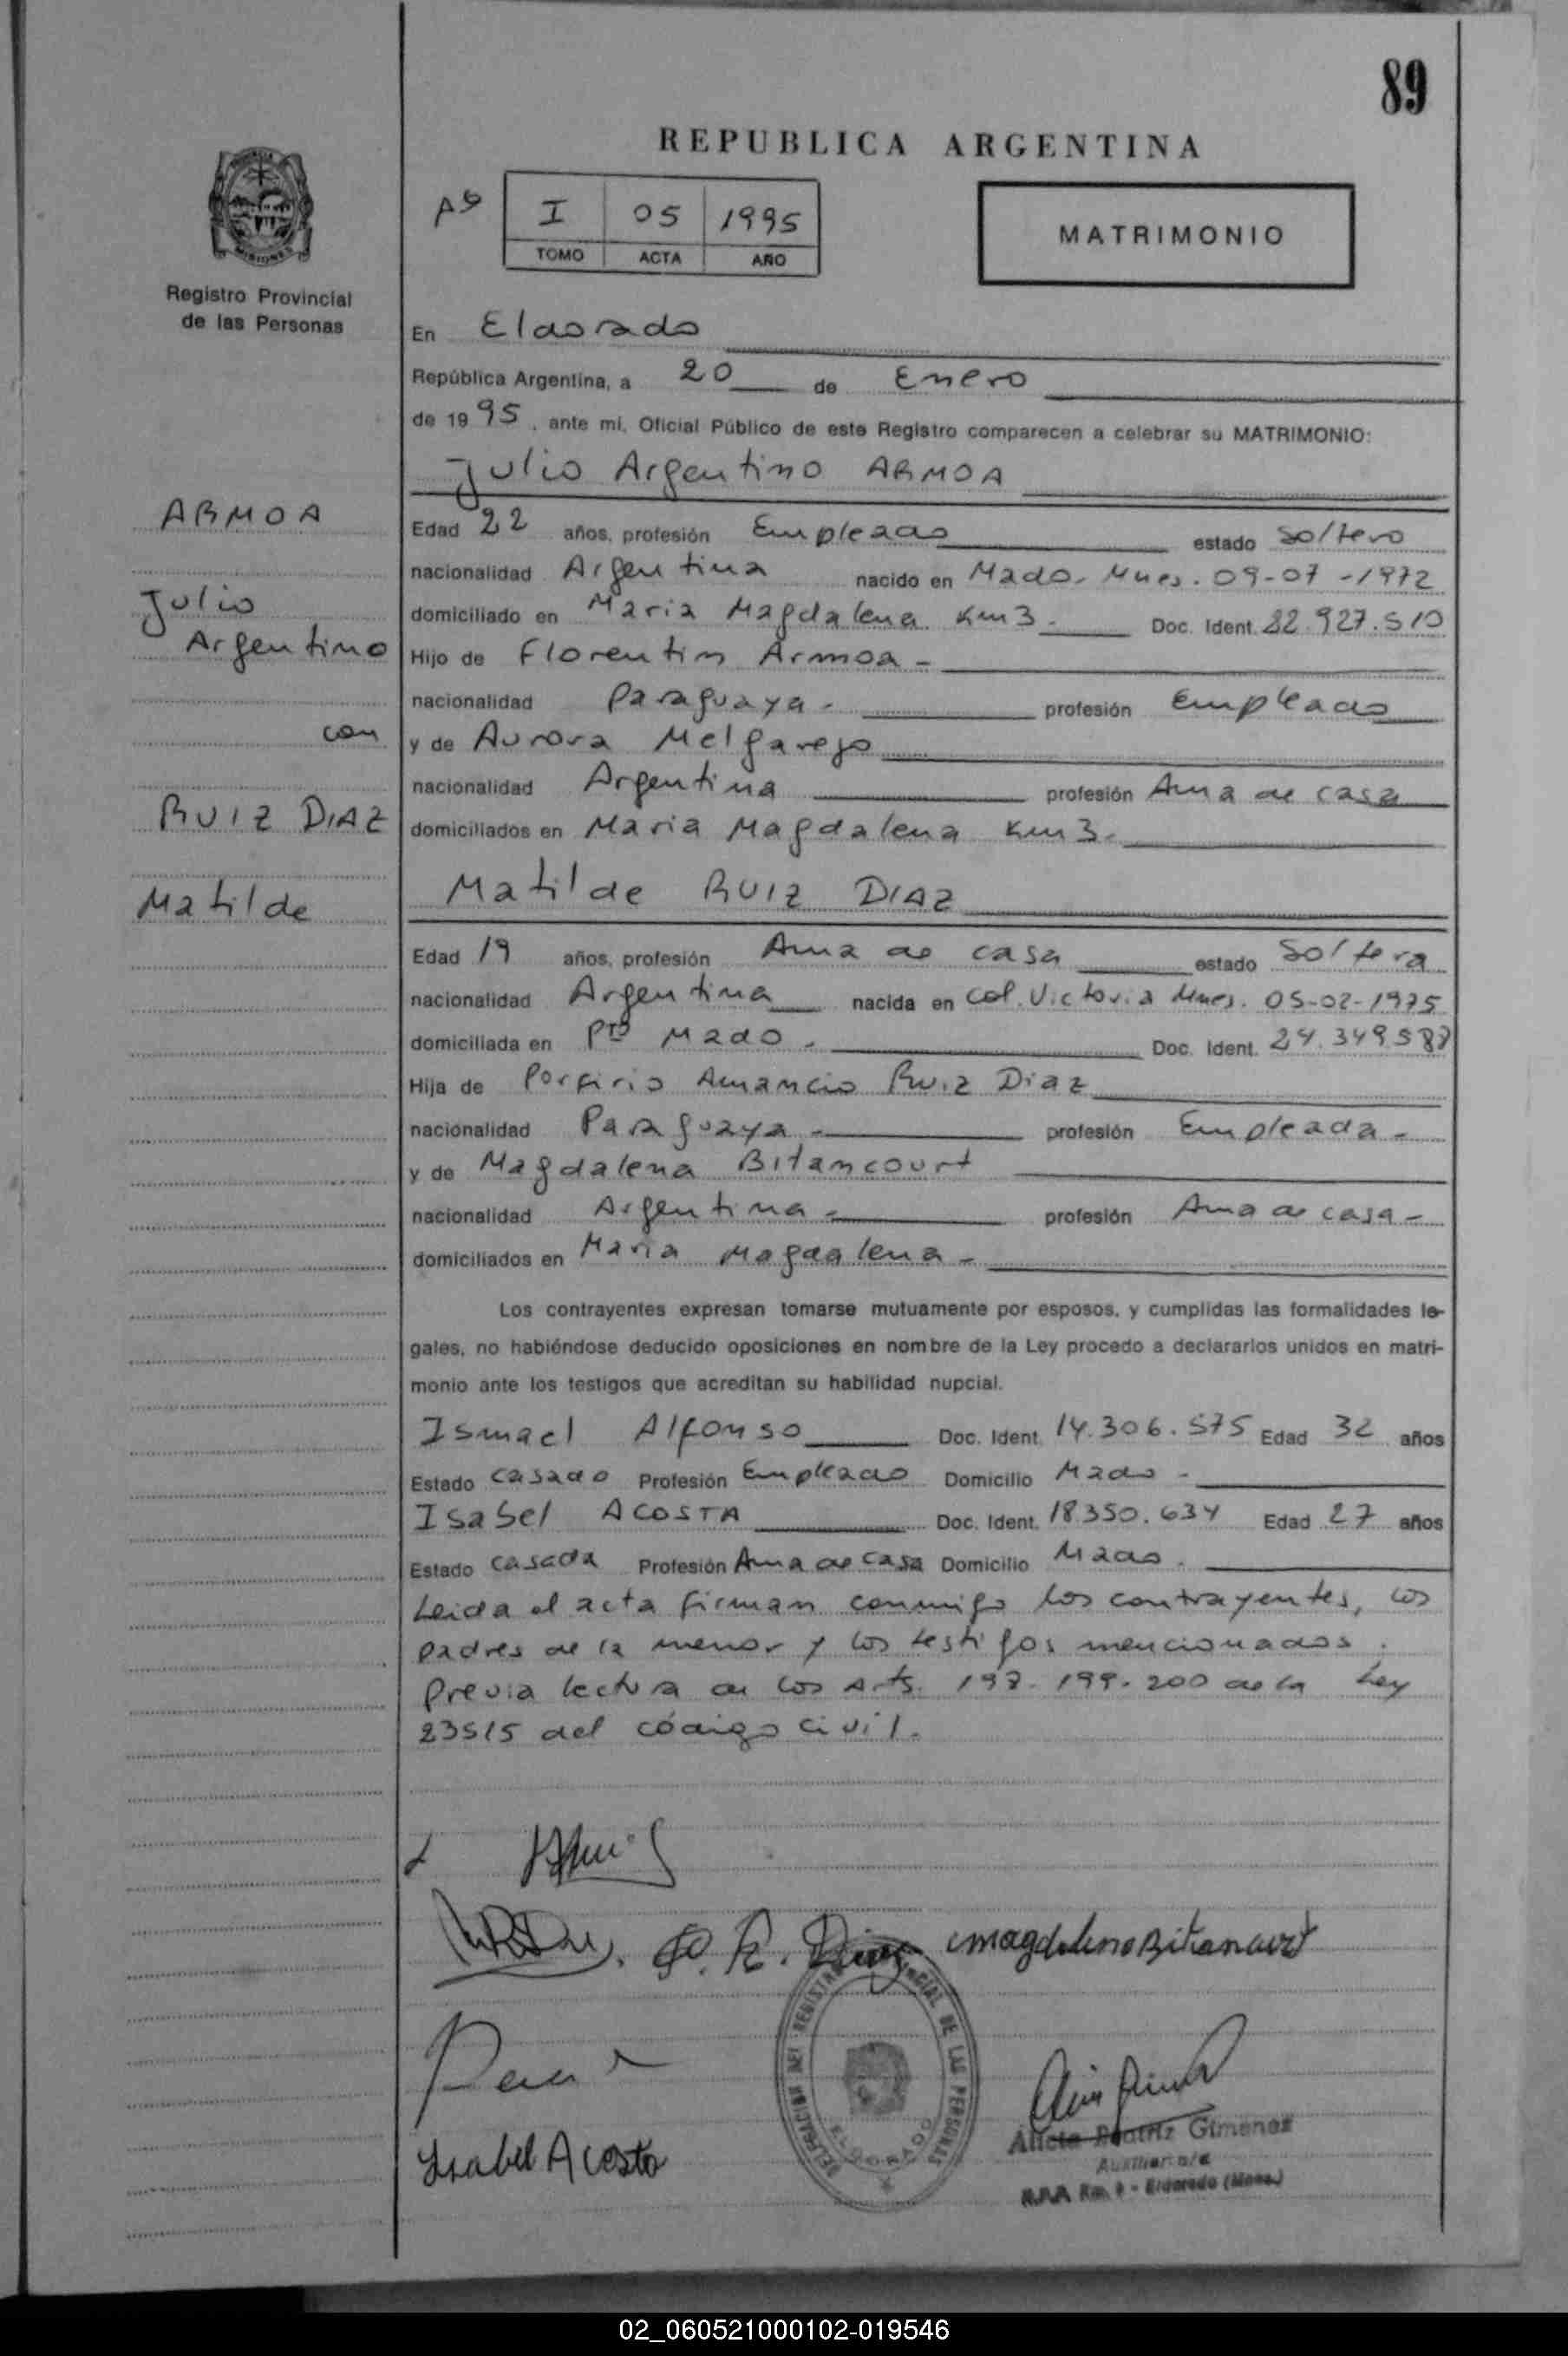 89
REPUBLICA ARGENTINA
I 05 1995
TOMO ACTA AÑO
MATRIMONIO
MISIONES
Registro Provincial
de las Personas
En Eldorado
República Argentina, a 20 de Enero
de 1995, ante mi, Oficial Público de este Registro comparecen a celebrar su MATRIMONIO:
Julio Argentino ARMOA
ARMOA
Julio
Argentino
con
RUIZ DIAZ
Matilde
Edad 22 años, profesión Empleado estado Soltero
nacionalidad Argentina nacido en Mado. Mnes. 09-07-1972
domiciliado en Maria Magdalena Km 3. Doc. Ident. 22.927.510
Hijo de Florentin Armoa -
nacionalidad Paraguaya - profesión Empleado
y de Aurora Melgarejo
nacionalidad Argentina profesión Ama de casa
domiciliados en Maria Magdalena Km 3.
Matilde RUIZ DIAZ
Edad 19 años, profesión Ama de casa estado Soltera
nacionalidad Argentina nacida en Col. Victoria Mnes. 05-02-1975
domiciliada en Pto Mado. Doc. Ident. 24.349.587
Hija de Porfirio Amancio Ruiz Diaz
nacionalidad Paraguaya - profesión Empleada -
y de Magdalena Bitancourt
nacionalidad Argentina - profesión Ama de casa -
domiciliados en Maria Magdalena -
Los contrayentes expresan tomarse mutuamente por esposos, y cumplidas las formalidades le-
gales, no habiéndose deducido oposiciones en nombre de la Ley procedo a declararlos unidos en matri-
monio ante los testigos que acreditan su habilidad nupcial.
Ismael Alfonso Doc. Ident. 14.306.575 Edad 32 años
Estado casado Profesión Empleado Domicilio Mado -
Isabel ACOSTA Doc. Ident. 18.350.634 Edad 27 años
Estado casada Profesión Ama de casa Domicilio Mado.
Leida el acta firman conmigo los contrayentes, los
padres de la menor y los testigos mencionados.
Previa lectura de los Arts. 198. 199. 200 de la Ley
23515 del código civil.
Magdalena Bitancourt
DELEGACION DEL REGISTRO PROVINCIAL DE LAS PERSONAS
ELDORADO
Isabel Acosta
Alicia Beatriz Gimenez
Auxiliar
Eldorado (Mnes.)
02_060521000102-019546